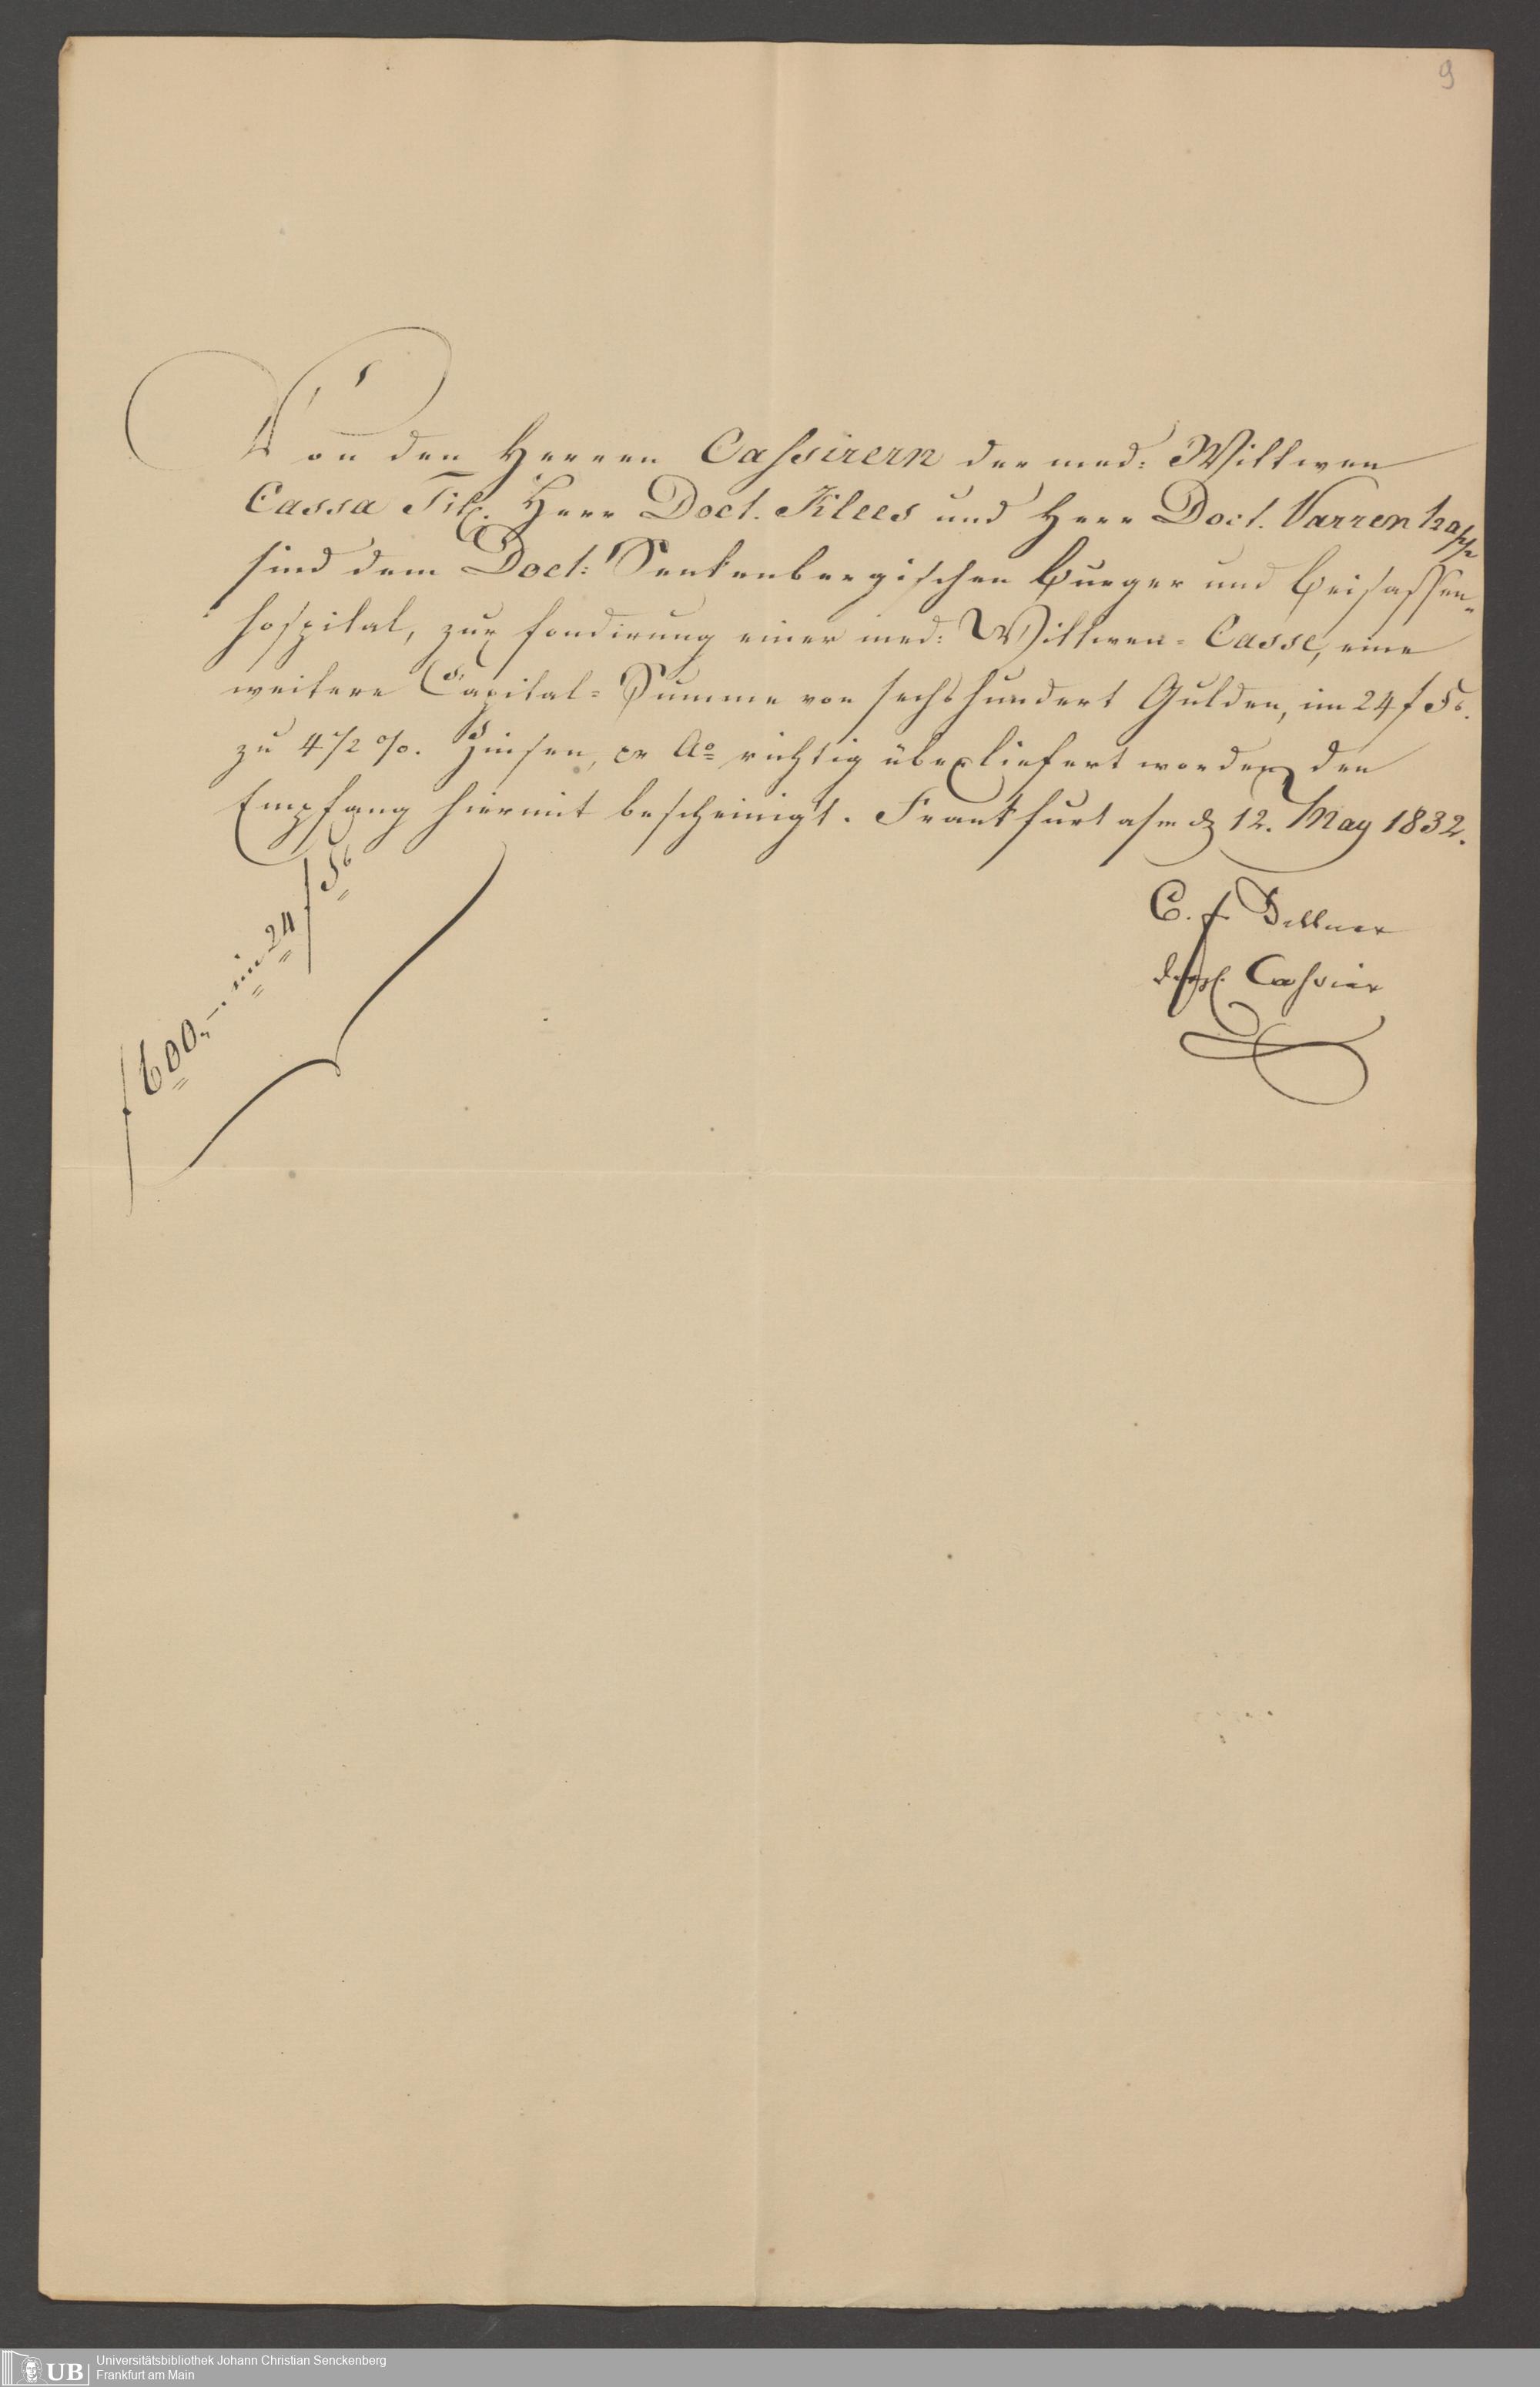 9
Von den Herren Cassirern der med: Wittwen
Cassa Tit. Herr Doct. Klees und Herr Doct. Varrentrapp
sind dem Doct: Senkenbergischen Burger und Beisassen-
hospital, zur fondirung einer med: Wittwen-Casse, eine
weitere Capital-Summe von sechshundert Gulden, im 24 f
zu 4 1/2 %. Zinsen, pr Ao richtig überliefert worden, den
Empfang hiermit bescheinigt. Frankfurt a/m d 12. May 1832.
C. f. Dellner
Cassier
f 600.- im 24 f
UB
Universitätsbibliothek Johann Christian Senckenberg
Frankfurt am Main